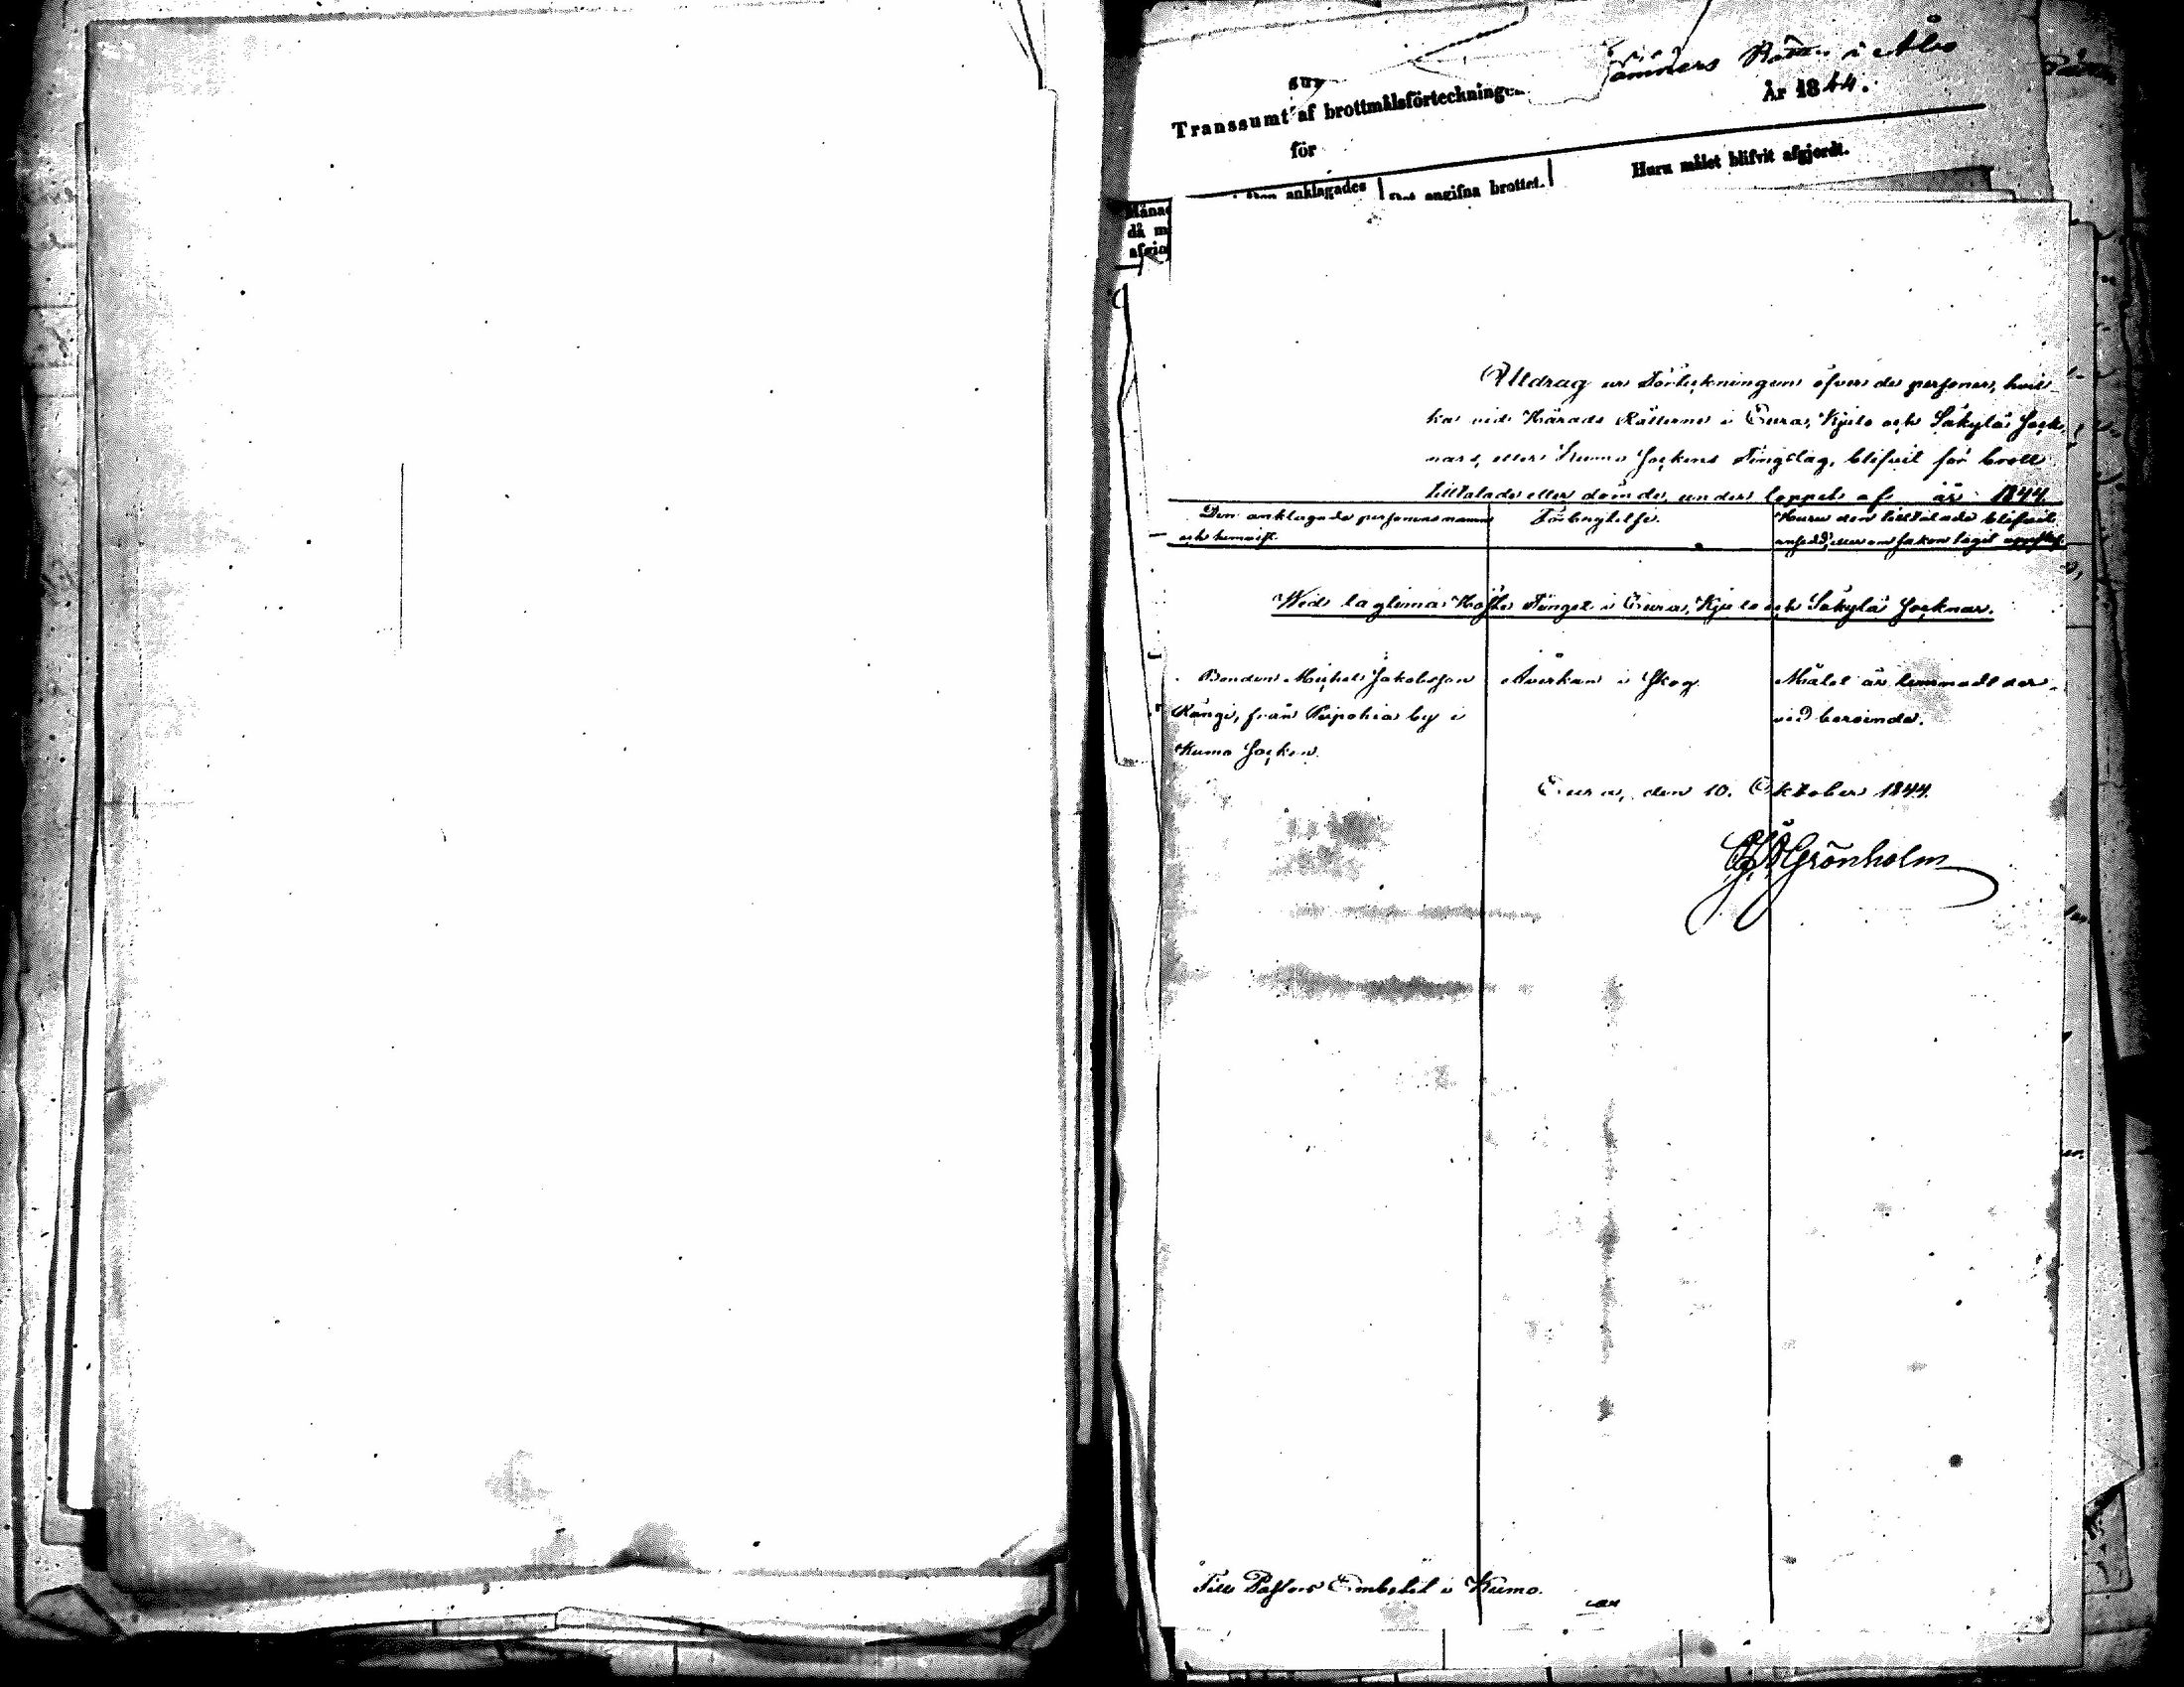 Kämners Rätten i Åbo
År 1844.
Transsumt af brottmålsförteckningen
för
Den anklagades
Det angifna brottet.
Huru målet blifvit afgjordt.
Månad
då m
Utdrag ur Förteckningen öfver de personer, hvil-
ka vid Härads Rätterne i Eura, Kjulo och Säkylä Sock-
nars, eller Kumo Sockens Tingslag, blifvit för brott
tilltalade eller dömde, under loppet af år 1844.
Den anklagade personens namn
och hemvist.
Förbrytelse.
Huru den tilltalade blifvit
ansedd, eller om saken tagit uppskof.
Wid lagtima Höste Tinget i Eura, Kjulo och Säkylä Socknar.
Bonden Michel Jakobsson
Rångi, från Peipohia by i
Kumo Socken.
Åverkan i Skog.
Målet är lemnadt der-
vid beroende.
Eura, den 10. Oktober 1844.
Grönholm
Till Pastors Embetet i Kumo.